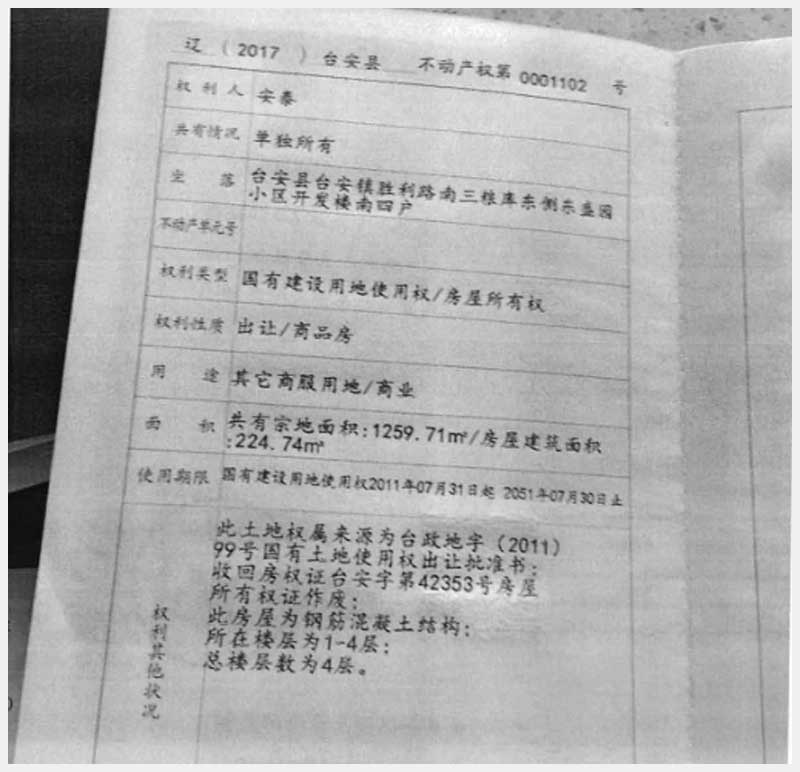 辽（2017 ）台安县 不动产权第 0001102 号
权利人 安泰
共有情况 单独所有
坐落 台安县台安镇胜利路南三粮库东侧东盛园
小区开发楼南四户
不动产单元号
权利类型 国有建设用地使用权/房屋所有权
权利性质 出让/商品房
用途 其它商服用地/商业
面积 共有宗地面积:1259.71㎡/房屋建筑面积
:224.74㎡
使用期限 国有建设用地使用权2011年07月31日起 2051年07月30日止
权利其他状况
此土地权属来源为台政地字（2011）
99号国有土地使用权出让批准书；
收回房权证台安字第42353号房屋
所有权证作废；
此房屋为钢筋混凝土结构；
所在楼层为1-4层；
总楼层数为4层。